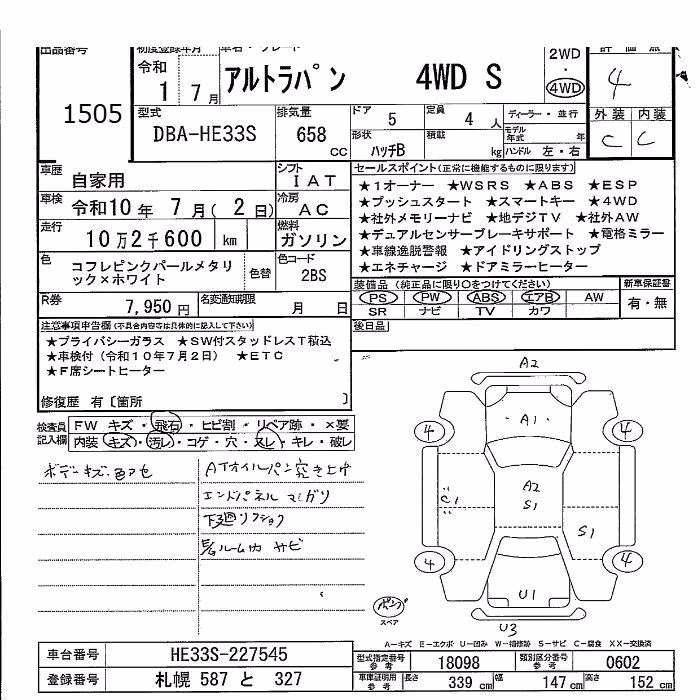 出品番号
1505
初度登録年月
令和
1 7月
車名・グレード
アルトラパン 4WD S
2WD
・
4WD
評価点
4
外装 内装
C C
型式
DBA-HE33S
排気量
658 CC
ドア 5
定員 4 人
形状 ハッチB
積載 kg
ディーラー・並行
モデル年式 年
ハンドル 左・右
車歴 自家用
シフト IAT
車検 令和10年 7月( 2日)
冷房 AC
走行 10万2千600 km
燃料 ガソリン
色 コフレピンクパールメタリック×ホワイト
色替
色コード 2BS
R券 7,950円
名変通知期限 月 日
セールスポイント(正常に機能するものに限ります)
★1オーナー ★WSRS ★ABS ★ESP
★プッシュスタート ★スマートキー ★4WD
★社外メモリーナビ ★地デジTV ★社外AW
★デュアルセンサーブレーキサポート ★電格ミラー
★車線逸脱警報 ★アイドリングストップ
★エネチャージ ★ドアミラーヒーター
装備品 (純正品に限り○をつけてください)
PS PW ABS エアB AW
SR ナビ TV カワ
新車保証書
有・無
後日品
注意事項申告欄(不具合内容等は具体的に記入して下さい)
★プライバシーガラス ★SW付スタッドレスT積込
★車検付(令和10年7月2日) ★ETC
★F席シートヒーター
修復歴 有〔箇所 〕
検査員記入欄
FW キズ・飛石・ヒビ割・リペア跡・×要
内装 キズ・汚レ・コゲ・穴・スレ・キレ・破レ
ボデーキズ、色アセ
ATオイルパン突き上げ
エンドパネル マガリ
下廻リフショク
サビ
A2
A1
4 4
A2
S1
C1
S1
4 4
U1
U3
スペア
A-キズ E-エクボ U-凹み W-補修跡 S-サビ C-腐食 XX-交換済
車台番号 HE33S-227545
登録番号 札幌 587 と 327
型式指定番号参考 18098
類別区分番号参考 0602
車庫証明用参考 長さ 339 cm 幅 147 cm 高さ 152 cm